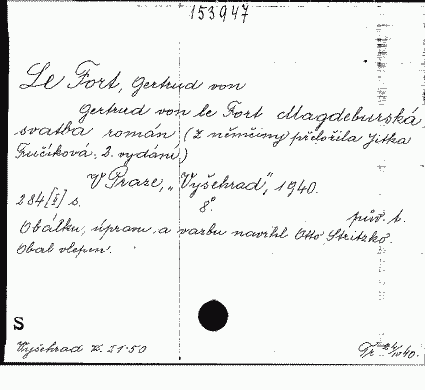 153947
Le Fort, Gertrud von
Gertrud von le Fort Magdeburská
svatba román (Z němčiny přeložila Jitka
Fučíková. 2. vydání)
V Praze, „Vyšehrad", 1940.
284 [I] s. 8°. pův. t.
Obálku, úpravu a vazbu navrhl Otto Stritzko.
Obal vlepen.
S
Vyšehrad K. 21·50